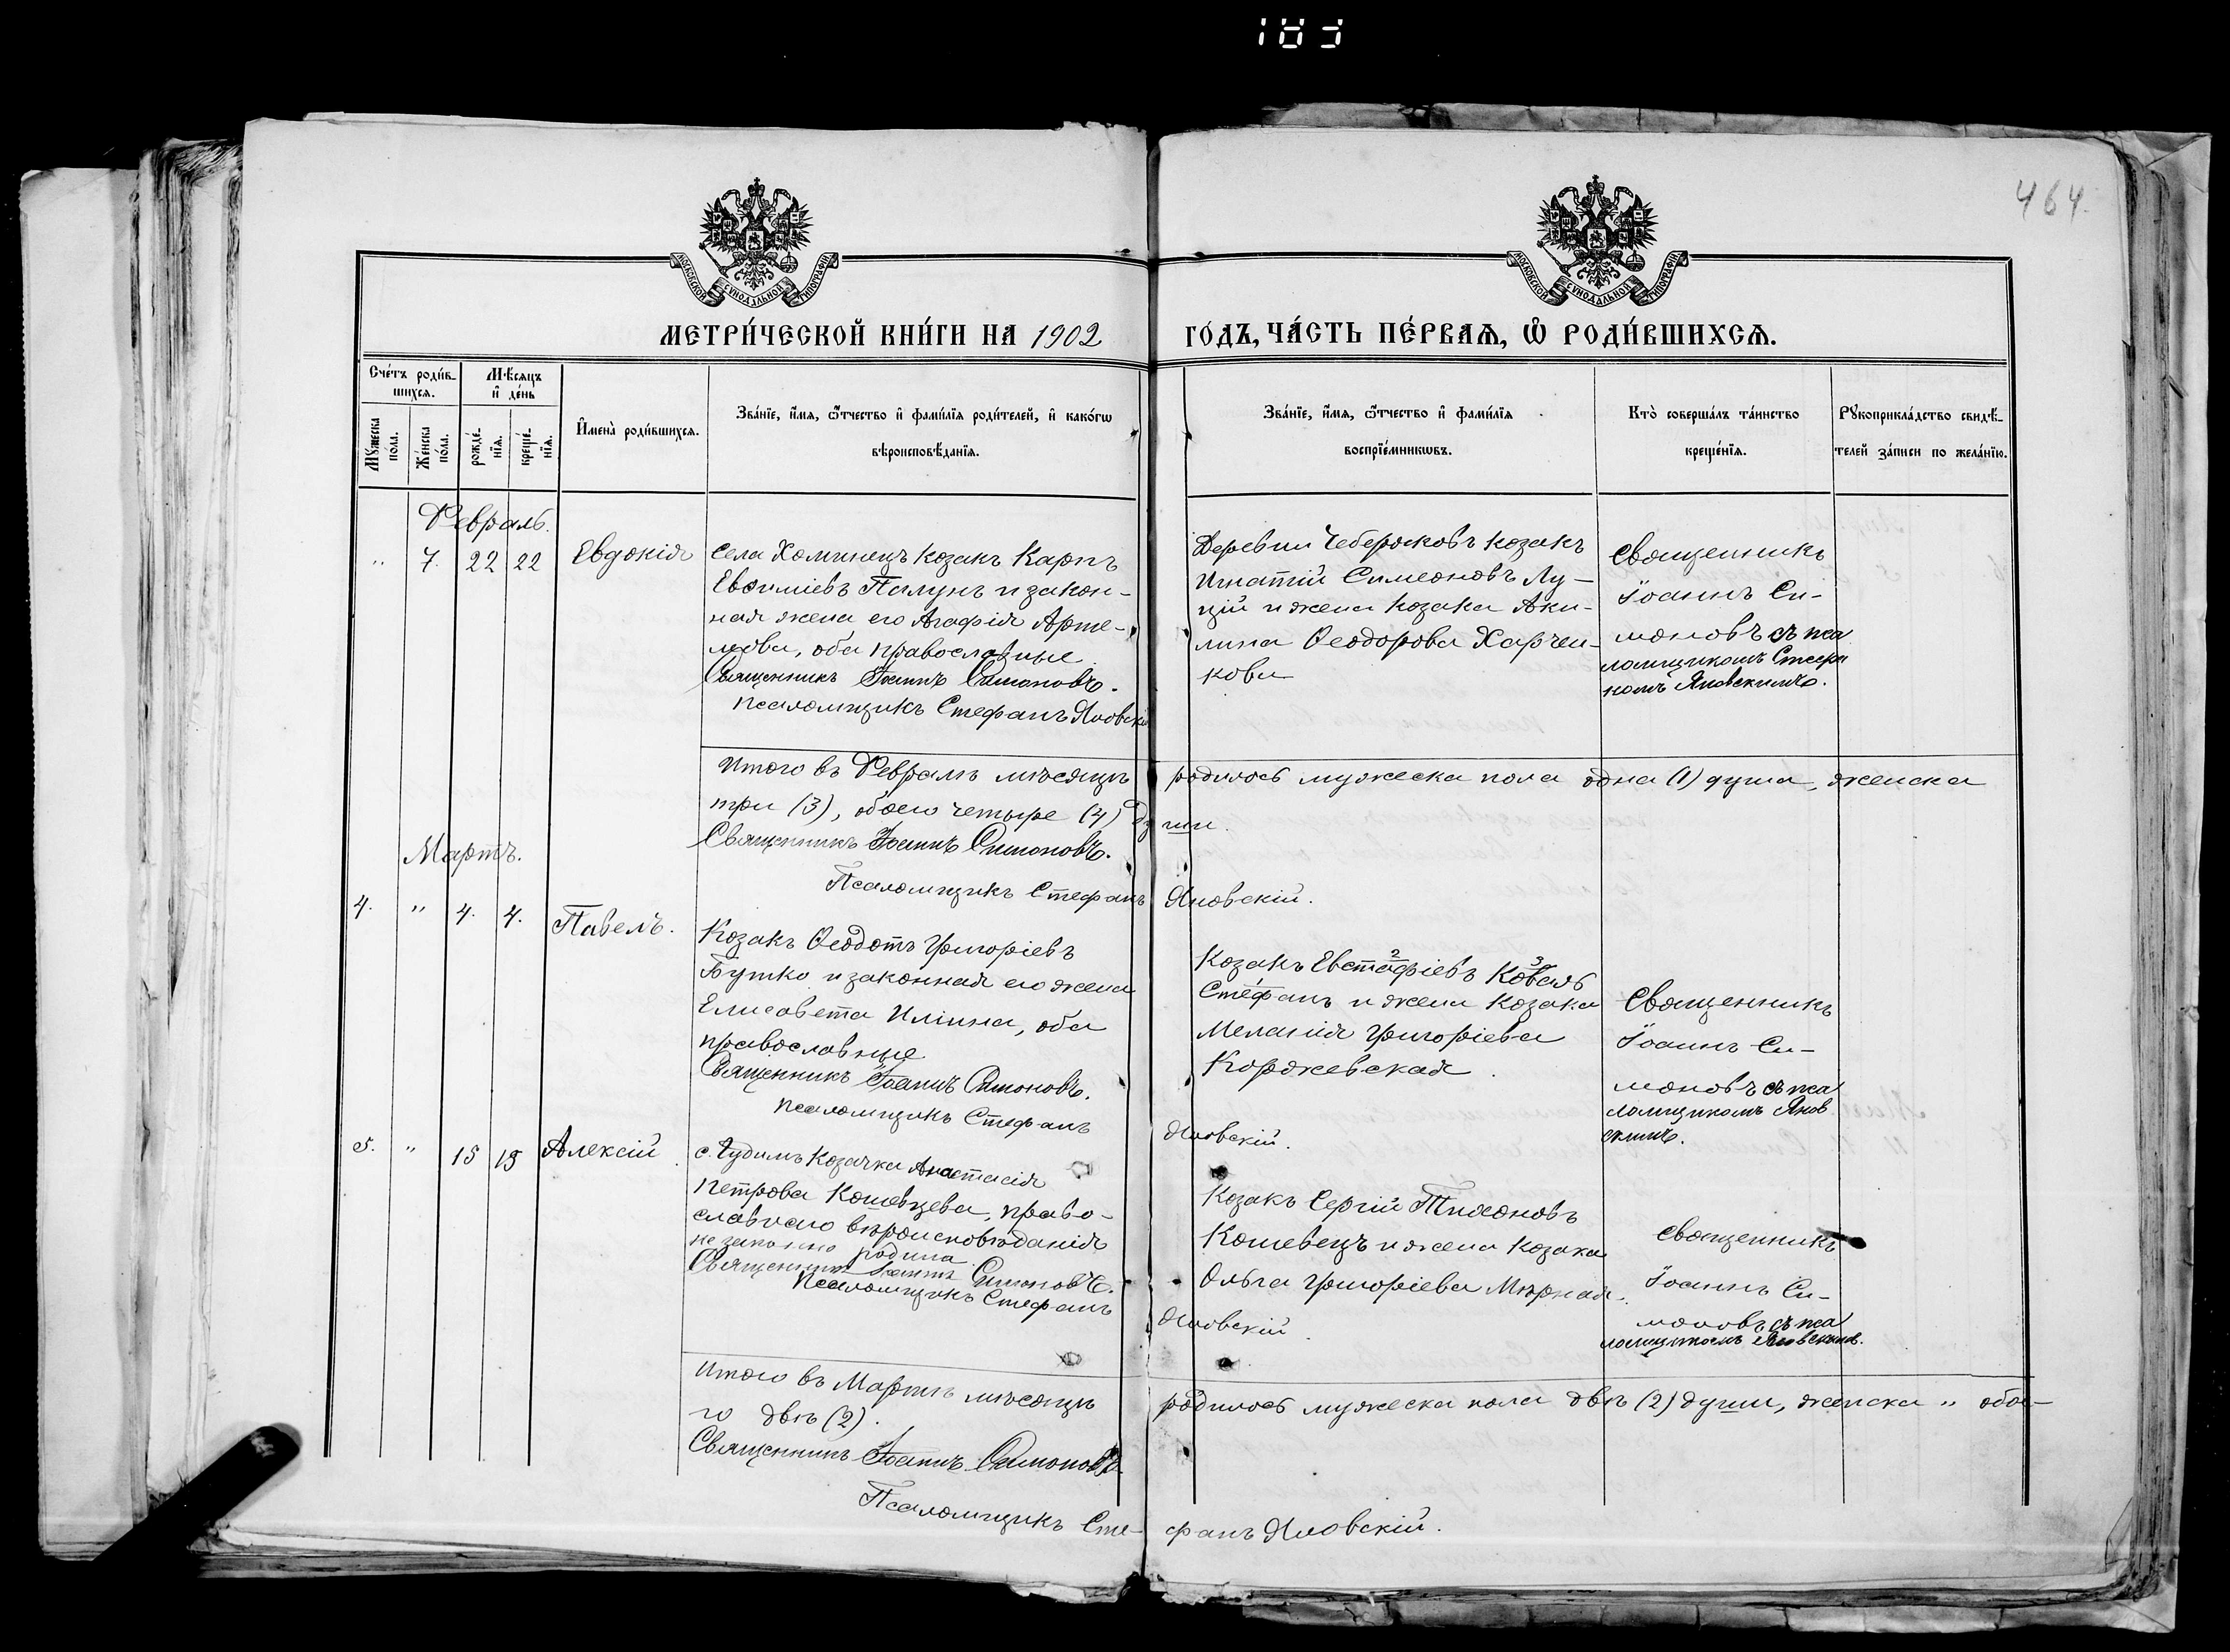 183
464.
МОСКОВСКОЙ СѴНОДАЛЬНОЙ ТИПОГРАФІИ
МОСКОВСКОЙ СѴНОДАЛЬНОЙ ТИПОГРАФІИ
МЕТРИ́ЧЕСКОЙ КНИ́ГИ НА 1902 ГО́ДЪ, ЧА́СТЬ ПЕ́РВАѦ, Ѡ҆ РОДИ́ВШИХСѦ.
Сче́тъ роди́в-
шихсѧ.
Мѣ́сѧцъ
и҆ де́нь
Мꙋ́жеска
по́ла.
Же́нска
по́ла.
рожде́-
нїѧ.
креще́-
нїѧ.
И҆мена̀ роди́вшихсѧ.
Зва́нїе, и҆́мѧ, ѻ҆́тчество и҆ фами́лїѧ роди́телей, и҆ како́гѡ
вѣроисповѣ́данїѧ.
Зва́нїе, и҆́мѧ, ѻ҆́тчество и҆ фами́лїѧ
воспрїе́мникѡвъ.
Кто̀ соверша́лъ та́инство
креще́нїѧ.
Рꙋкоприкла́дство свидѣ́-
телей за́писи по жела́нїю.
Февраль.
" 7. 22 22 Евдокія
Села Хоминецъ козакъ Карпъ
Евѳиміевъ Палунъ и закон-
ная жена его Агафія Арте-
мова, оба православные.
Священникъ Іоаннъ Симоновъ.
Псаломщикъ Стефанъ Яновскій
Деревни Чеберяковъ козакъ
Игнатій Симеоновъ Лу-
цій и жена козака Аки-
лина Ѳеодорова Харчен-
кова
Священникъ
Іоаннъ Си-
моновъ съ пса
ломщикомъ Стефа
номъ Яновскимъ.
Итого въ Февралѣ мѣсяцѣ родилось мужеска пола одна (1) душа, женска
три (3), обоего четыре (4) души.
Священникъ Іоаннъ Симоновъ.
Псаломщикъ Стефанъ Яновскій.
Мартъ.
4. " 4. 4. Павелъ.
Козакъ Ѳеодотъ Григоріевъ
Бутко и законная его жена
Елисавета Иліина, оба
православные
Священникъ Іоаннъ Симоновъ.
Псаломщикъ Стефанъ Яновскій.
Козакъ Евстафіевъ 2 Коваль 3
Стефанъ 1 и жена козака
Меланія Григоріева
Коржевская.
Священникъ
Іоаннъ Си-
моновъ съ пса
ломщикомъ Янов
скимъ.
5. " 15 15 Алексій
с. Чудимъ Козачка Анастасія
Петрова Кошевцева, право-
славнаго вѣроисповѣданія
незаконно родила
Священникъ Іоаннъ Симоновъ.
Псаломщикъ Стефанъ Яновскій.
Козакъ Сергій Тихоновъ
Кошевецъ и жена козака
Ольга Григоріева Мирная.
Священникъ
Іоаннъ Си-
моновъ съ пса
ломщикомъ Яновскимъ.
Итого въ Мартѣ мѣсяцѣ родилось мужеска пола двѣ (2) души, женска " обое-
го двѣ (2).
Священникъ Іоаннъ Симоновъ
Псаломщикъ Сте-фанъ Яновскій.